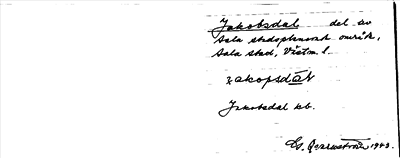 Jakobsdal del av
Sala stadsplanerat område,
Sala stad, Västm. l.
jakopsdāl
Jakobsdal kb.
1943.